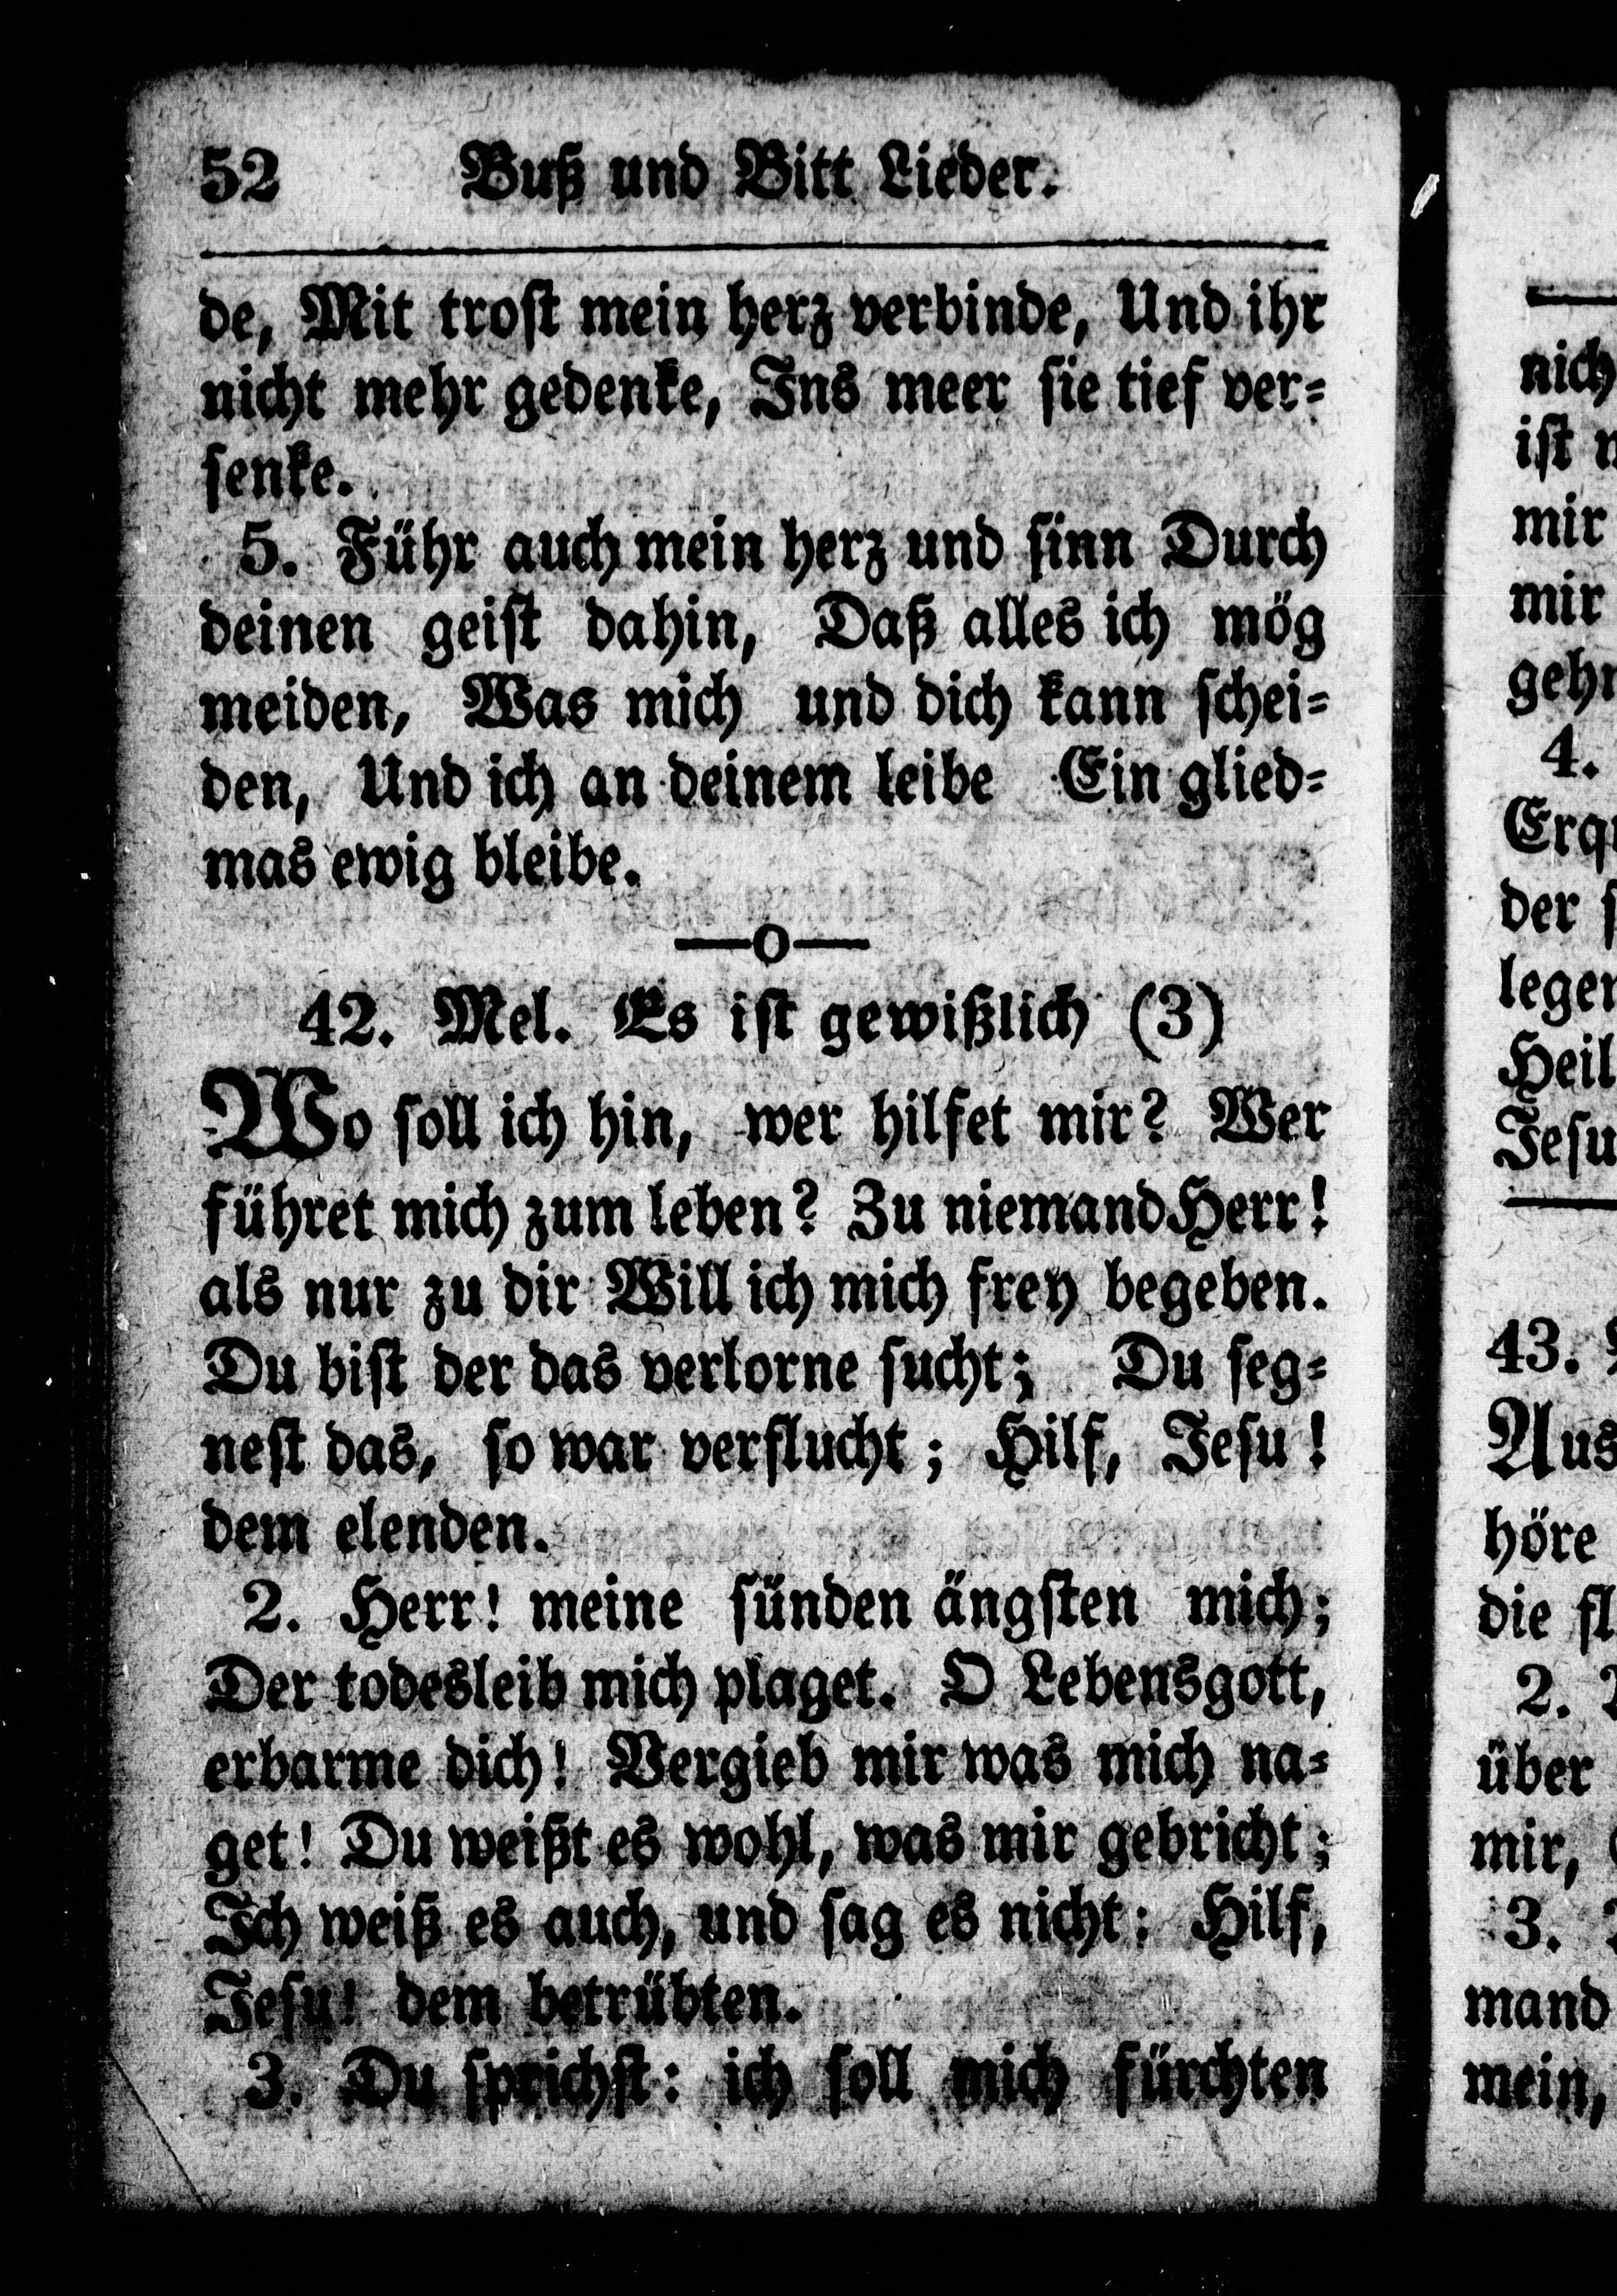 52 Buß und Bitt Lieder.
de, Mit trost mein herz verbinde, Und ihr
nicht mehr gedenke, Ins meer sie tief ver=
senke.
5. Führ auch mein herz und sinn Durch
deinen geist dahin, Daß alles ich mög
meiden, Was mich und dich kann schei=
den, Und ich an deinem leibe Ein glied=
mas ewig bleibe.
—o—
42. Mel. Es ist gewißlich (3)
Wo soll ich hin, wer hilfet mir? Wer
führet mich zum leben? Zu niemand Herr!
als nur zu dir Will ich mich frey begeben.
Du bist der das verlorne sucht; Du seg=
nest das, so war verflucht; Hilf, Jesu!
dem elenden.
2. Herr! meine sünden ängsten mich;
Der todesleib mich plaget. O Lebensgott,
erbarme dich! Vergieb mir was mich na=
get! Du weißt es wohl, was mir gebricht;
Ich weiß es auch, und sag es nicht: Hilf,
Jesu! dem betrübten.
3. Du sprichst: ich soll mich fürchten
nich
ist
mir
mir
geh
4.
Erq
der
legen
Heil
Jesu
43.
Aus
höre
die fl
2.
über
mir,
3.
mand
mein,